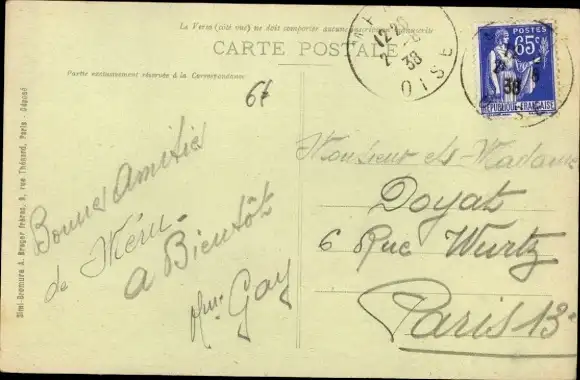 Le Verso (côté vue) ne doit comporter aucune inscription manuscrite
CARTE POSTALE
Partie exclusivement réservée à la Correspondance
67
12 20
2-6
38
OISE
POSTES
65c
RÉPUBLIQUE FRANÇAISE
Simi-Bromure A. Breger frères, 9, rue Thénard, Paris - Déposé
Bonnes Amitiés
de Méru.
a Bientôt
Gay
Monsieur et Madame
Doyat
6 Rue Wurtz
Paris 13e